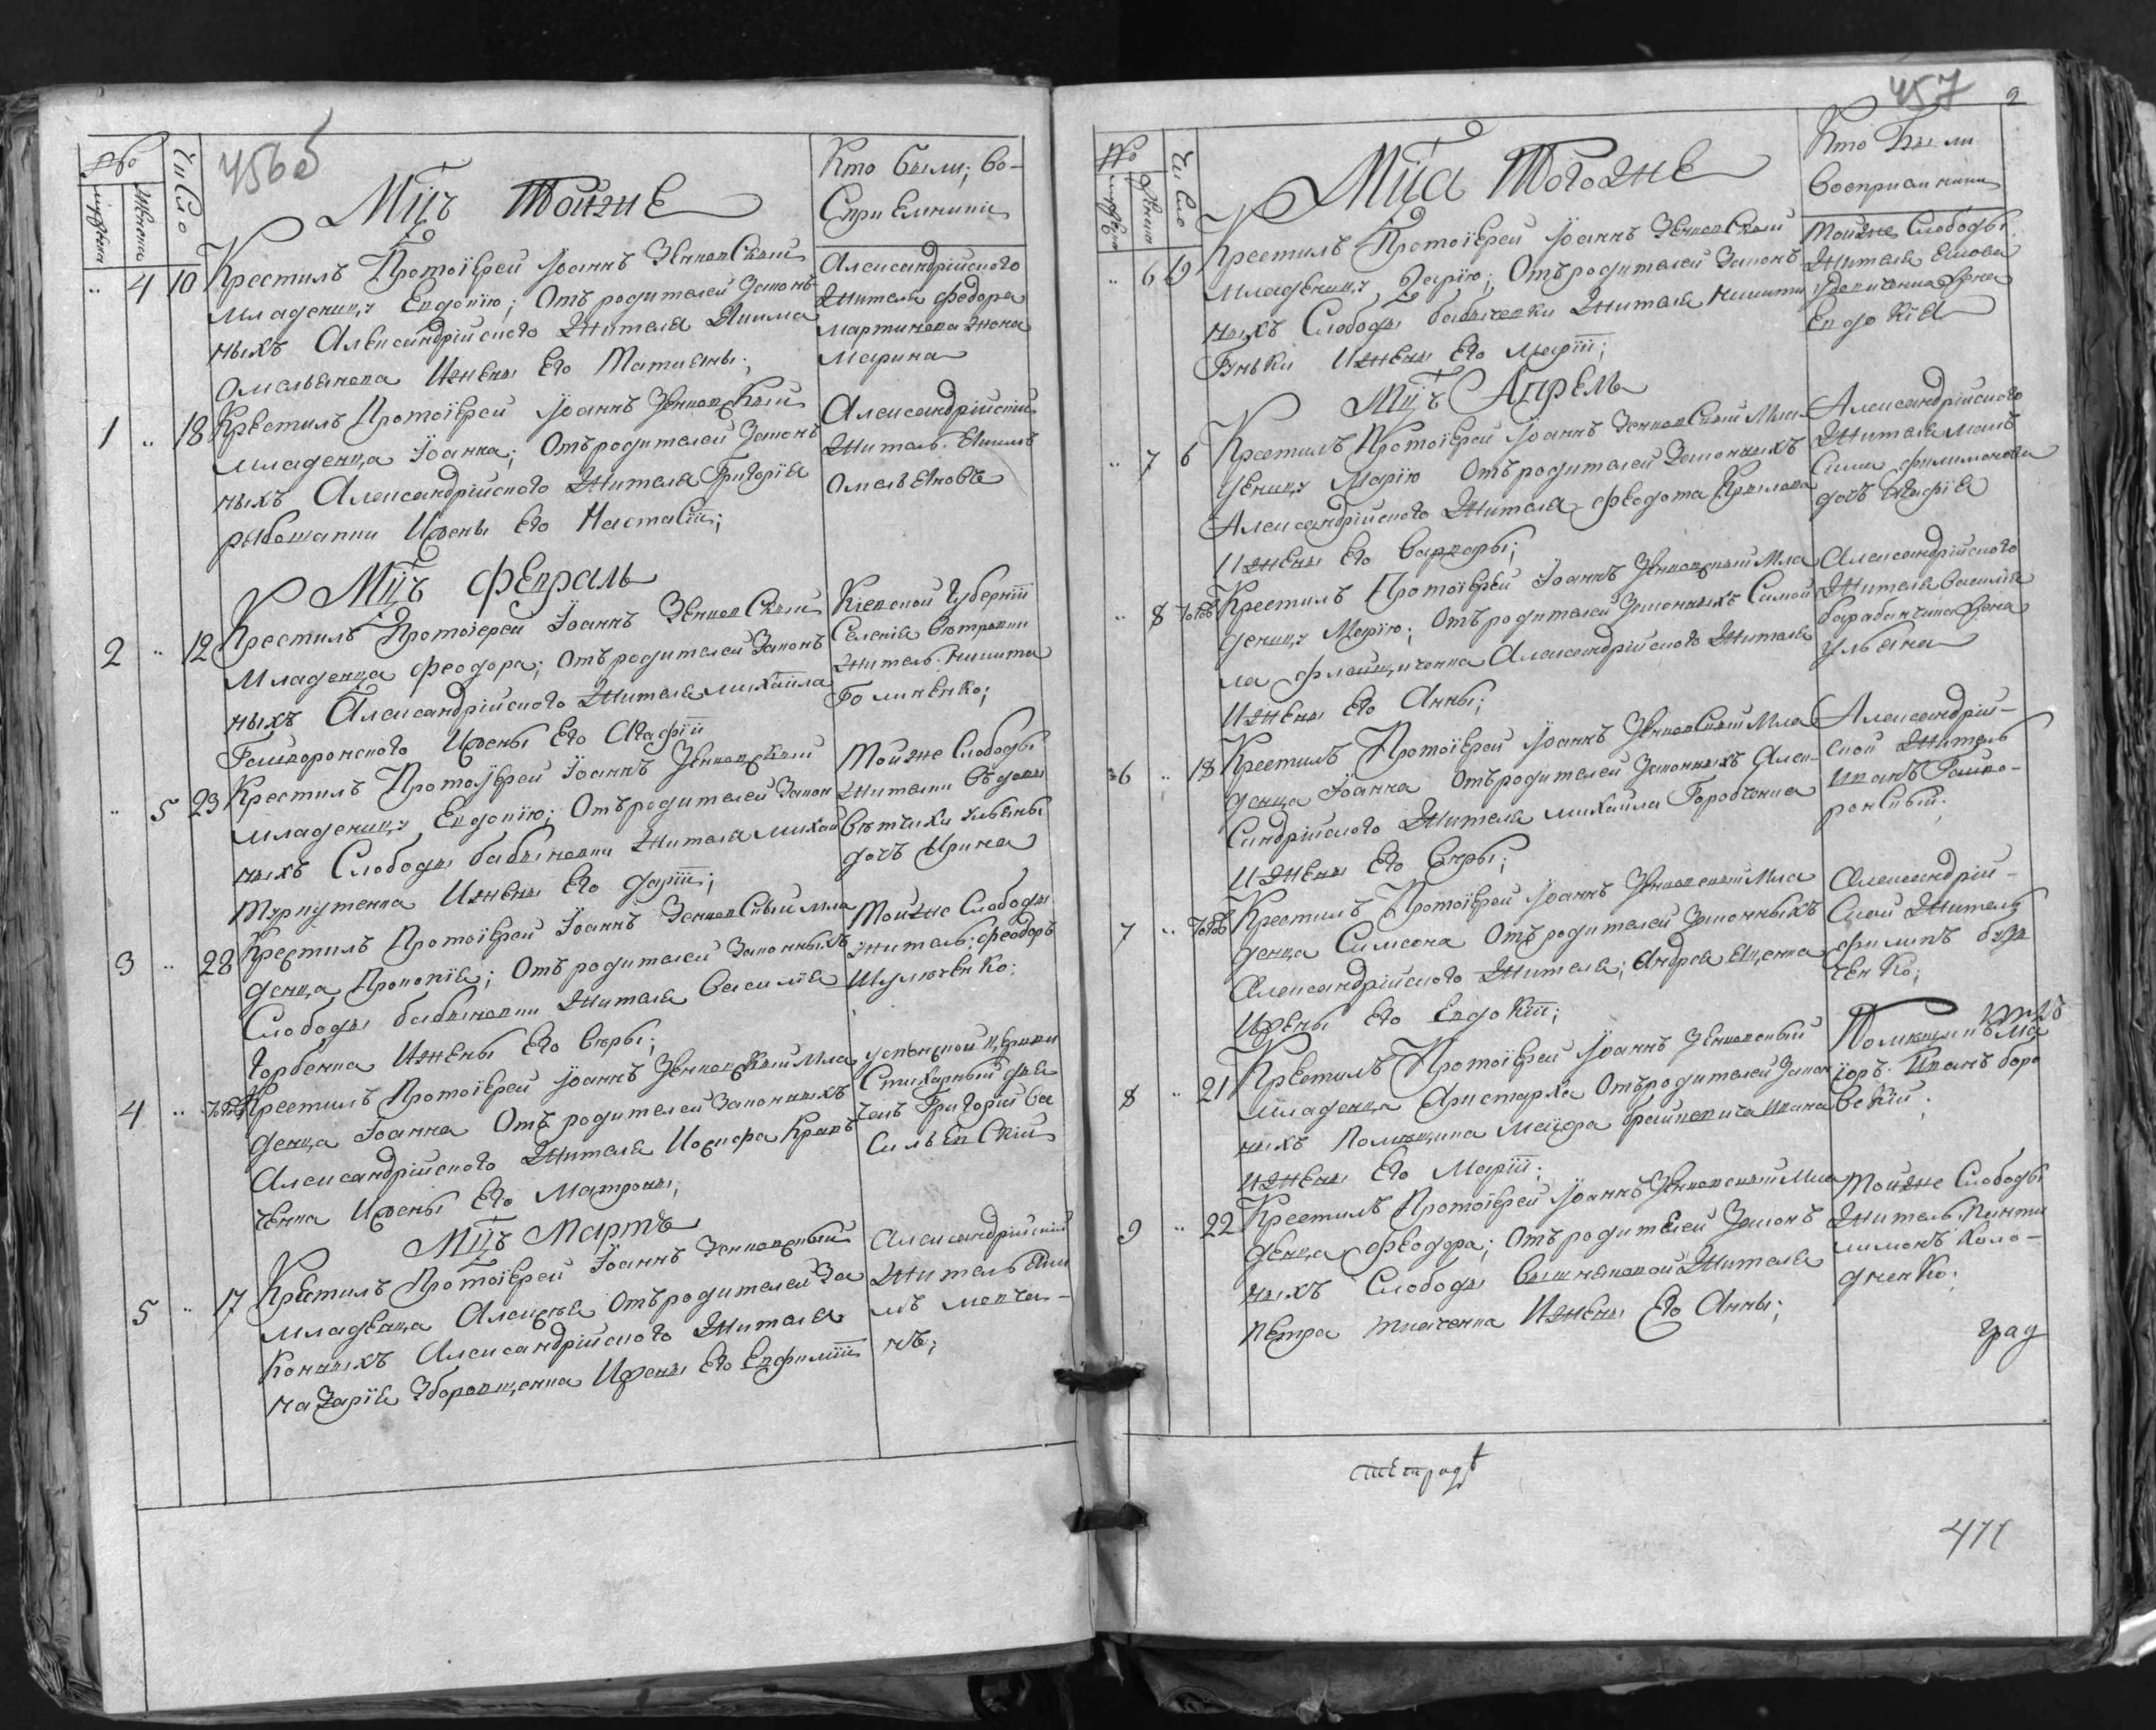 456б
Число
мужеска
женска
Мцъ Тойже
Кто были; во-
сприемники
4 10 Крестилъ Протоіерей Іоаннъ Зеньковскій
младеницу Евдокію; Отъ родителей законъ
ныхъ Александрійского Жителя Якима
Омельянова Ижены Его Татианы;
Александрійского
Жителя Федора
мартинова жена
Марина
1 18 Крестилъ Протоіерей Іоаннъ Зеньковскій
младенца Іоанна; Отъ родителей Законъ
ныхъ Александрійского Жителя Григорія
рыбошапки Ижены Его Настасіи;
Александрійскій
Житель
Омельянова
Мцъ Февраль
2 12 Крестилъ Протоіерей Іоаннъ Зеньковскій
Младенца Феодора; Отъ родителей Законъ
ныхъ Александрійского Жителя михаила
Гайворонского Ижены Его Агафіи
Кіевской Губерніи
Селенія
Житель Никита
Голиченко;
5 23 Крестилъ Протоіерей Іоаннъ Зеньковскій
младеницу Евдокію; Отъ родителей Закон
ныхъ Слободы бабенковки Жителя михаи
Ижены Его даріи;
Тойже Слободы
Жителки вдовы
Ульяны
дочь Ирина
3 28 Крестилъ Протоіерей Іоаннъ Зеньковскій мла
денца Прокопія; Отъ родителей Законныхъ
Слободы бабенковки Жителя василія
Горбенка Ижены Его вѣры;
Тойже Слободы
житель феодоръ
Шулюченко;
4 тогожъ Крестилъ Протоіерей Іоаннъ Зеньковскій Мла
денца Іоанна Отъ родителей Законныхъ
Александрійского Жителя Иосифа Крав
ченка Ижены Его Матроны;
успенской церкви
Стихарный дья
чекъ Григорий Ва
сильевскій
Мцъ Мартъ
5 17 Крестилъ Протоіерей Іоаннъ Зеньковскій
младенца Алексея Отъ родителей За
конныхъ Александрійского Жителя
назарія Зборовщенка Ижены Его Евфиміи
Александрійскій
Житель Яки
мъ мовча-
нъ;
457
2
Число
Мца Тогожне
Кто были
восприемники
6 19 Крестилъ Протоіерей Іоаннъ Зеньковскій
младеницу Дарію; Отъ родителей Законъ
ныхъ Слободы бабенковки Жителя никиты
Ижены Его Маріи;
Тойже Слободы
Жителя
жена
Евдокія
Мцъ Апрель
7 6 Крестилъ Протоіерей Іоаннъ Зеньковскій Мла
деницу Марію Отъ родителей Законныхъ
Александрійского Жителя Федота Крылова
Ижены Его варвары;
Александрійского
Жителя
филимонова
дочь Агафія
8 тогожъ Крестилъ Протоіерей Іоаннъ Зеньковскій Мла
деницу Марію; Отъ родителей Законныхъ Самой
ла Александрійского Жителя
Ижены Его Анны;
Александрійского
Жителя василія
барабанчика жена
ульяна
6 18 Крестилъ Протоіерей Іоаннъ Зеньковскій Мла
денца Іоанна Отъ родителей Законныхъ Алек-
сандрійского Жителя михаила Городченка
Ижены Его вѣры;
Александрій-
ской Житель
иванъ Гайво-
ронскый;
7 тогожъ Крестилъ Протоіерей Іоаннъ Зеньковскій Мла
денца Симеона Отъ родителей Законныхъ
Александрійского Жителя; Андрея Яценка
Ижены Его Евдокіи;
Александрій-
ской Житель
филипъ
ченко;
8 21 Крестилъ Протоіерей Іоаннъ Зеньковскый
младенца Аристарха Отъ родителей Закон
ныхъ помещика Маіора ивана
Ижены Его Маріи;
Помещикъ Ма
іоръ Иванъ боро
вскій;
9 22 Крестилъ Протоіерей Іоаннъ Зеньковскій Мла
денца Феодора; Отъ родителей Законъ
ныхъ Слободы Жителя
петра ткаченка Ижены Его Анны;
Тойже Слободы
Житель Панти
лимонъ Коло-
дченко;
град
411